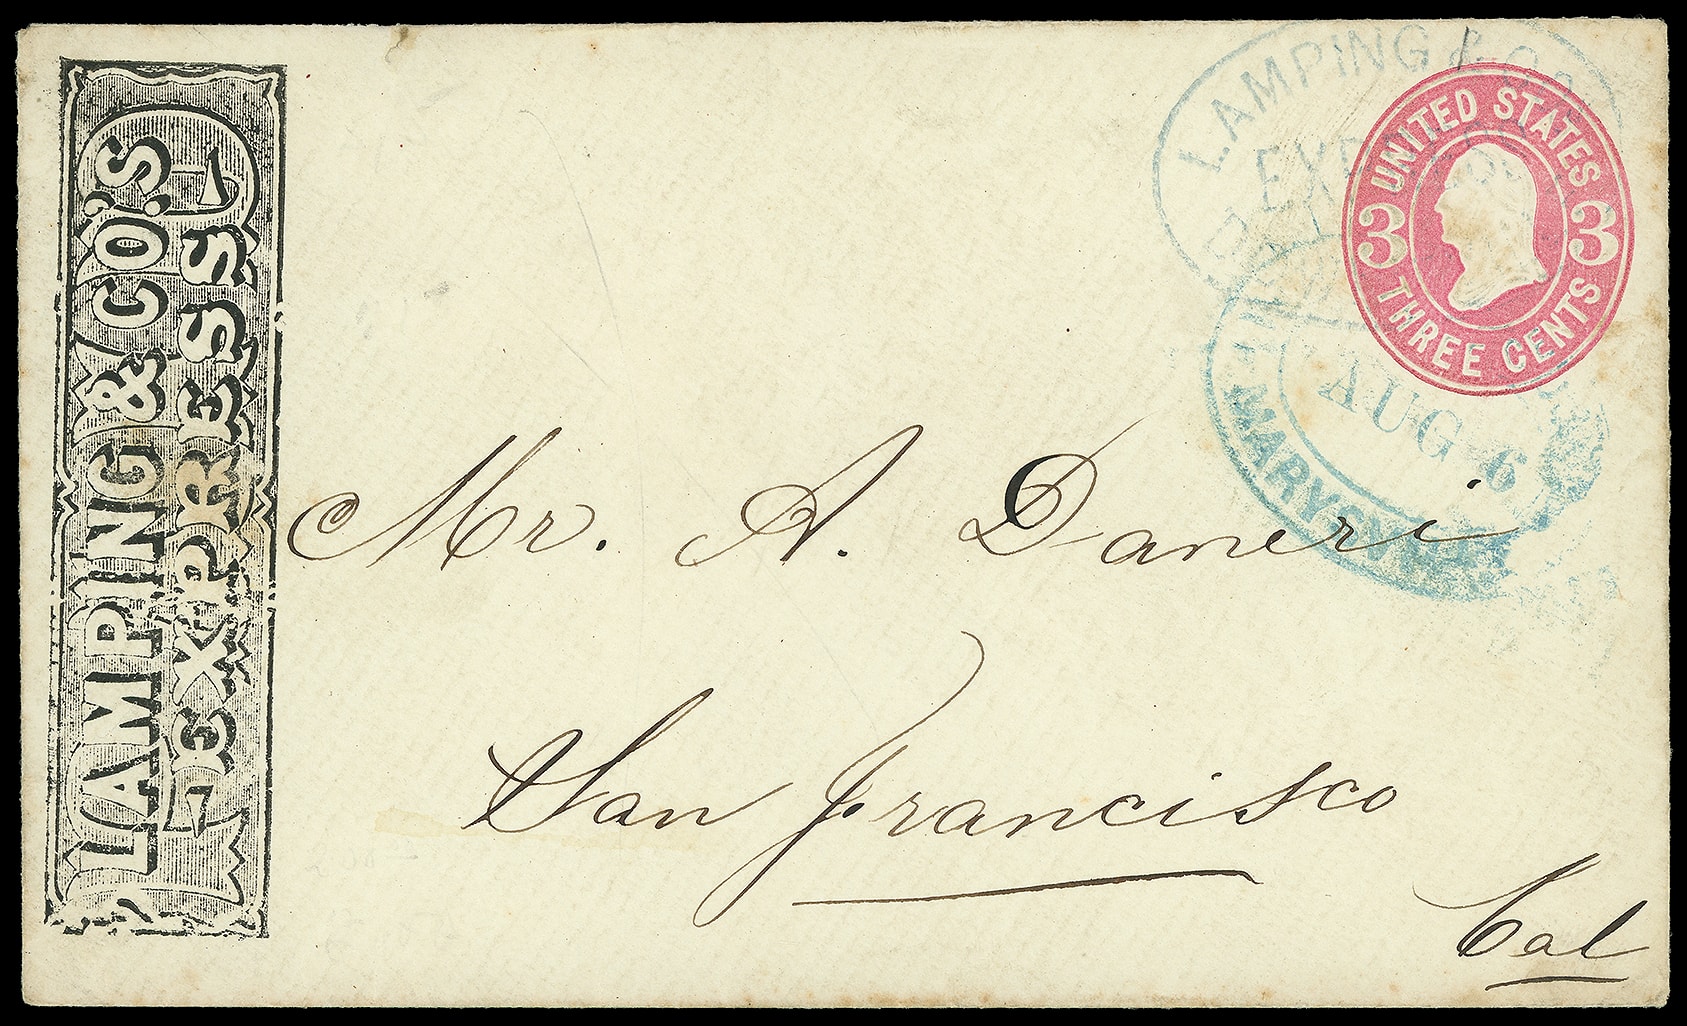 LAMPING & CO.'S
EXPRESS
LAMPING & CO.
UNITED STATES
3 3
THREE CENTS
AUG 6
MARYSVILLE
Mr. A. Daneri
San Francisco
Cal